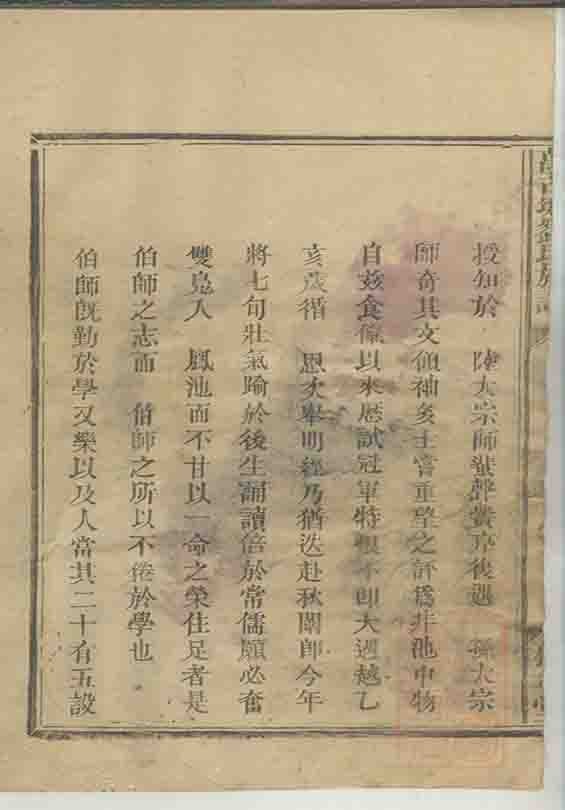 授知於　陸大宗師蜚聲黌序後遇　孫大宗
師奇其文傾袖多士嘗重望之評為非池中物
自茲食餼以來歷試冠軍特恨不即大遇越乙
亥歲循　恩次舉明經乃猶迭赴秋闈即今年
將七旬壯氣踰於後生誦讀倍於常儒願必奮
雙鳧入　鳳池而不甘以一命之榮住足者是
伯師之志而　伯師之所以不倦於學也
伯師既勤於學又樂以及人當其二十有五設